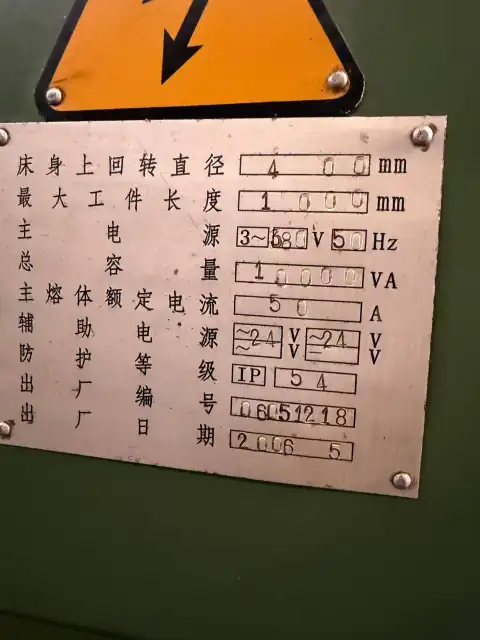 床身上回转直径 400 mm
最大工件长度 1000 mm
主电源 3~380 V 50 Hz
总容量 10000 VA
主熔体额定电流 50 A
辅助电源 ~24 V ~24 V
~ V — V
防护等级 IP 54
出厂编号 06051218
出厂日期 2006 5